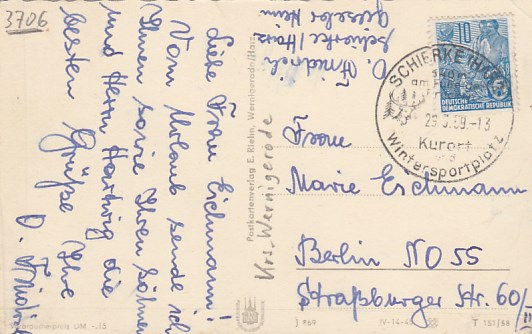 3706
D. Friedrich
Schierke/Harz
Liebe Frau Eichmann!
Vom Urlaub sende ich
Ihnen sowie Ihren Söhnen
und Herrn Hartwig die
besten Grüße Ihre
D. Friedrich
Krs. Wernigerode
Postkartenverlag E. Riehn, Wernigerode/Harz
Verbraucherpreis DM -.15
10
DEUTSCHE
DEMOKRATISCHE REPUBLIK
SCHIERKE (HARZ)
am Fuße
29.3.59.-13
Kurort
und
Wintersportplatz
Frau
Marie Eichmann
Berlin NO 55
Straßburger Str. 60/